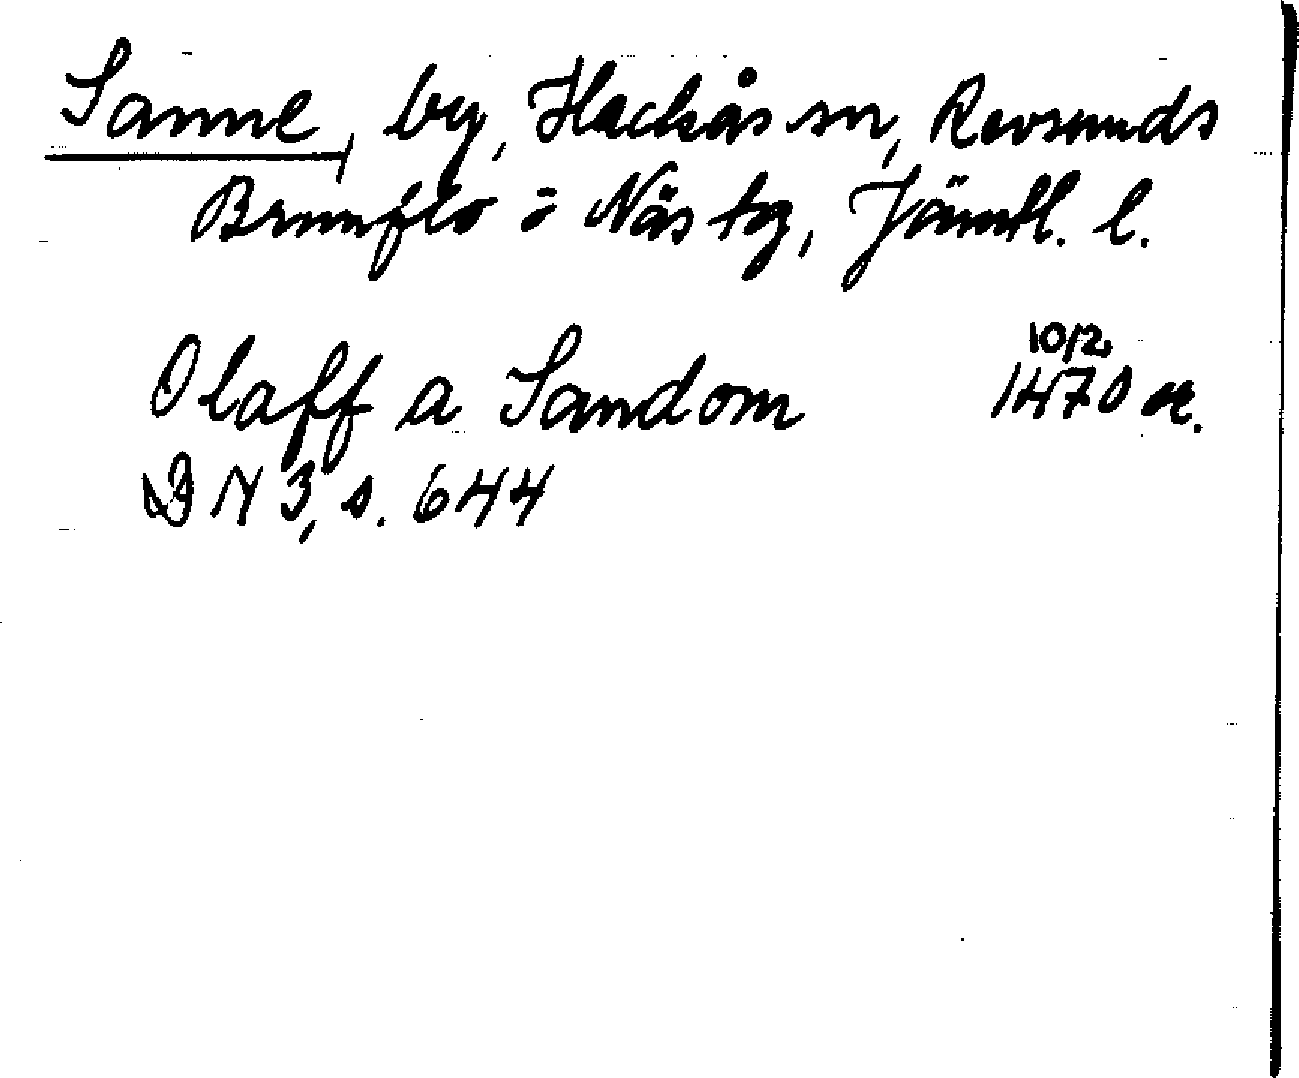 Sanne, by, Hackås sn, Revsunds
Brunflo o Näs tg, Jämtl. l.
10/2
Olaff a Sandom 1470 or.
DN 3, s. 644